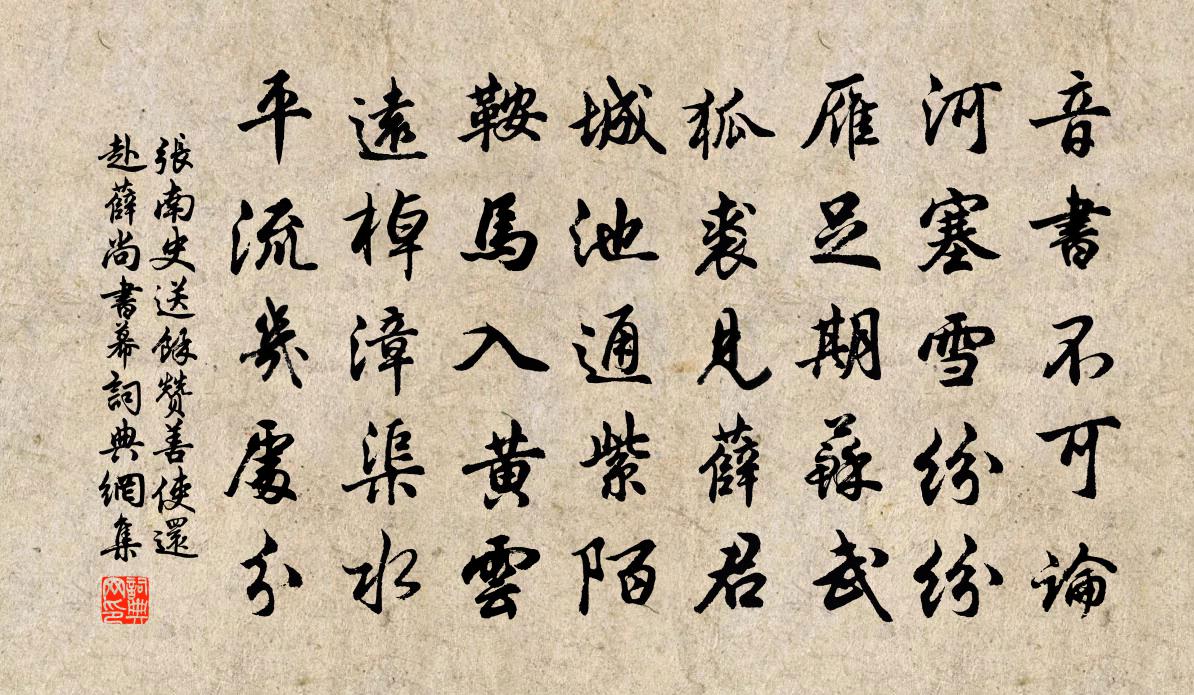 音書不可論
河塞雪紛紛
雁足期蘇武
狐裘見薛君
城池通紫陌
鞍馬入黃雲
遠棹漳渠水
平流幾處分
張南史送餘贊善使還
赴薛尚書幕詞典網集
詞典
网印